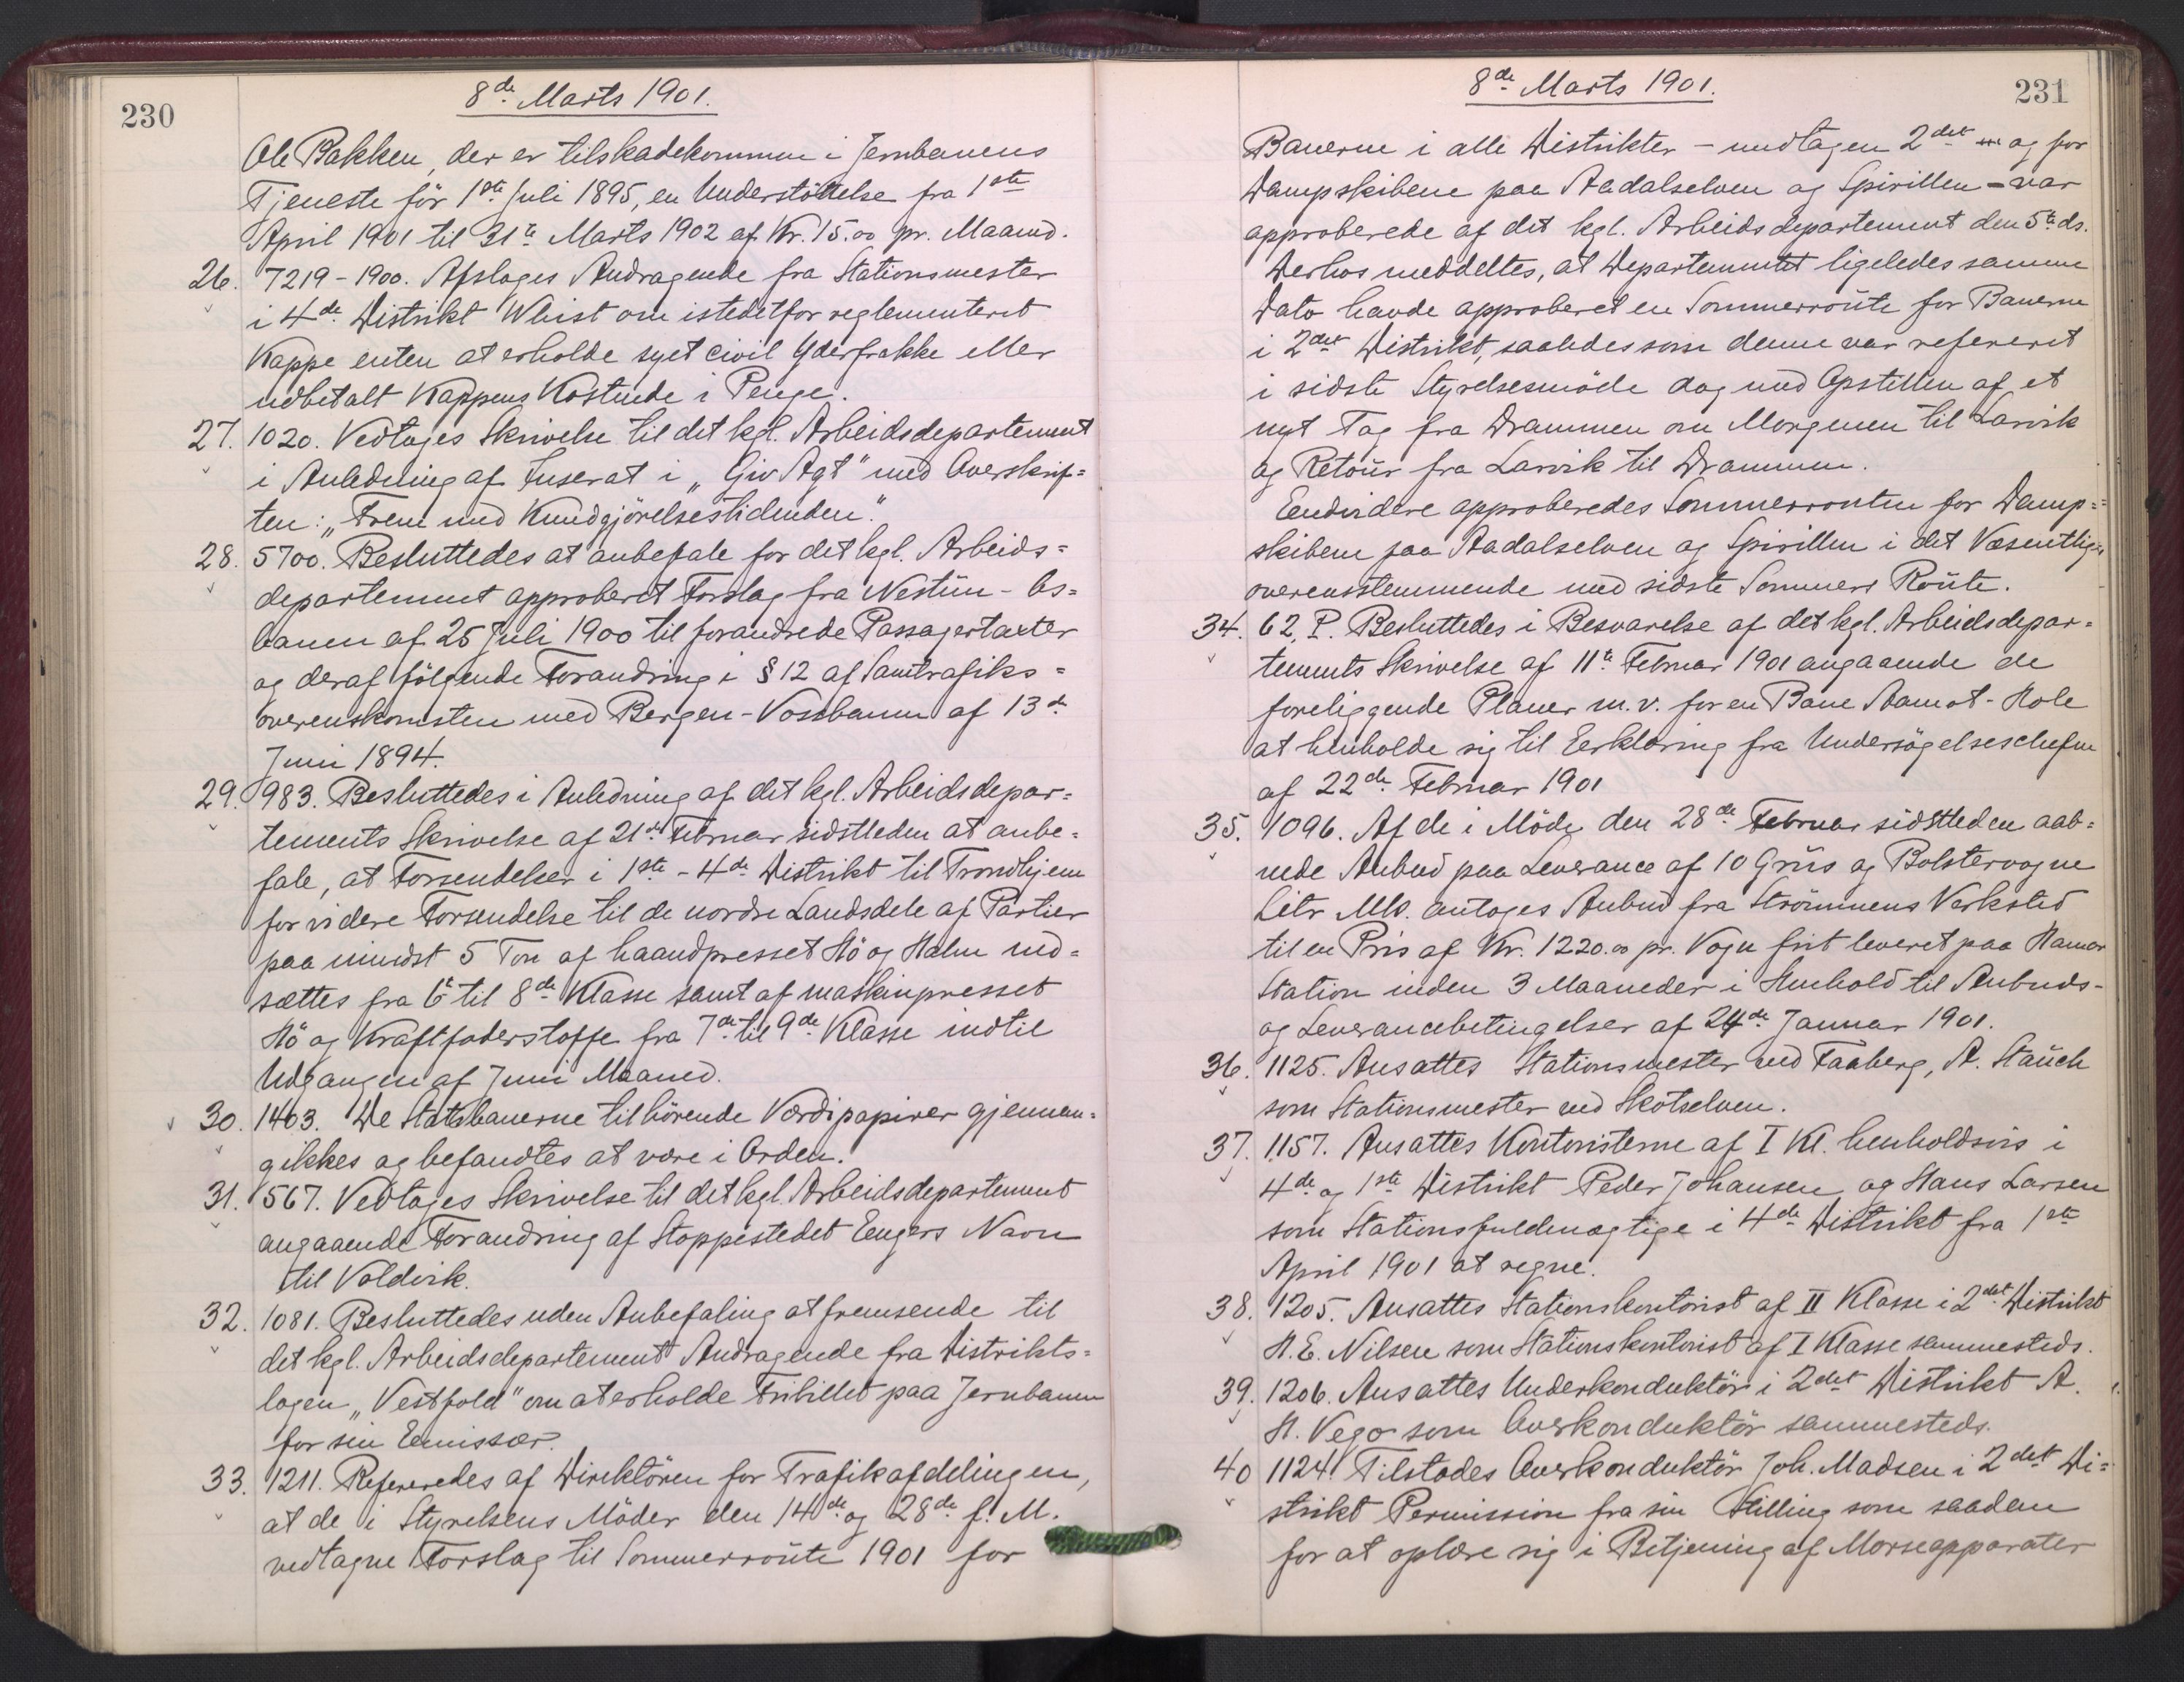 230
8de Marts 1901.
Ole Bakken, der er tilskadekommen i Jernbanens
Tjeneste før 1ste Juli 1895, en Understöttelse fra 1ste
April 1901 til 31te Marts 1902 af Kr. 15.00 pr. Maaned.
26. 7219-1900. Afslages Andragende fra Stationsmester
i 4de Distrikt Whist om istedetfor reglementeret
Kappe enten at erholde syet civil Yderfrakke eller
udbetalt Kappens Kostende i Penge.
27. 1020. Vedtoges Skrivelse til det kgl. Arbeidsdepartement
i Anledning af Inserat i „Giv Agt" med Overskrif=
ten: „Frem med Kundgjörelsestidenden".
28. 5700. Besluttedes at anbefale for det kgl. Arbeids=
departement approberet Forslag fra Nestün-Os=
banen af 25 Juli 1900 til forandrede Passagertaxter
og deraf fölgende Forandring i § 12 af Samtrafiks=
overenskomsten med Bergen-Vossbanen af 13de
Juni 1894.
29. 983. Besluttedes i Anledning af det kgl. Arbeidsdepar=
tements Skrivelse af 21de Februar sidstleden at anbe=
fale, at Forsendelser i 1ste - 4de Distrikt til Trondhjem
for videre Forsendelse til de nordre Landsdele af Partier
paa mindst 5 Ton af haandpresset Hö og Halm ned=
sættes fra 6te til 8de Klasse samt af maskinpresset
Hö og Kraftfoderstoffe fra 7de til 9de Klasse indtil
Udgangen af Juni Maaned.
30. 1403. De Statsbanerne tilhörende Værdipapirer gjennem=
gikkes og befandtes at være i Orden.
31. 567. Vedtoges Skrivelse til det kgl. Arbeidsdepartement
angaaende Forandring af Stoppestedet Engers Navn
til Voldvik.
32. 1081. Besluttedes uden Anbefaling at fremsende til
det kgl. Arbeidsdepartement Andragende fra Distrikts=
logen „Vestfold" om at erholde Fribillet paa Jernbanen
for sin Emissær.
33. 1211. Refereredes af Direktören for Trafikafdelingen,
at de i Styrelsens Möder den 14de og 28de f. M.
vedtagne Forslag til Sommerroute 1901 for
231
8de Marts 1901.
Banerne i alle Distrikter - undtagen 2det og for
Dampskibene paa Aadalselven og Spirillen - var
approberede af det kgl. Arbeidsdepartement den 5te ds.
Derhos meddeltes, at Departementet ligeledes samme
Dato havde approberet en Sommerroute for Banerne
i 2det Distrikt, saaledes som denne var refereret
i sidste Styrelsesmöde dog med Opstillen af et
nyt Tog fra Drammen om Morgenen til Larvik
og Retour fra Larvik til Drammen.
Eendvidere approberedes Sommerrouten for Damp=
skibene paa Aadalselven og Spirillen i det Væsentlige
overensstemmende med sidste Sommers Route.
34. 62. P. Besluttedes i Besvarelse af det kgl. Arbeidsdepar=
tements Skrivelse af 11te Februar 1901 angaaende de
foreliggende Planer m.v. for en Bane Aamot-Hole
at henholde sig til Eerklæring fra Undersögelseschefen
af 22de Februar 1901
35. 1096. Af de i Möde den 28de Februar sidstleden aab=
nede Anbud paa Leverance af 10 Grus og Bolstervogne
Litr Mb. antoges Anbud fra Strömmens Verksted
til en Pris af Kr. 1220.00 pr. Vogn frit leveret paa Hamar
Station inden 3 Maaneder i Henhold til Anbuds-
og Leverancebetingelser af 24de Januar 1901.
36. 1125. Ansattes Stationsmester ved Faaberg, A. Stauch
som Stationsmester ved Skotselven.
37. 1157. Ansattes Kontoristerne af I Kl. henholdsvis i
4de og 1ste Distrikt Peder Johansen og Hans Larsen
som Stationsfuldmægtige i 4de Distrikt fra 1ste
April 1901 at regne.
38. 1205. Ansattes Stationskontorist af II Klasse i 2det Distrikt
H. E. Nilsen som Stationskontorist af I Klasse sammesteds.
39. 1206. Ansattes Underkonduktör i 2det Distrikt A.
H. Vego som Overkonduktör sammesteds.
40 1124. Tilstodes Overkonduktör Joh. Madsen i 2det Di=
strikt Permission fra sin Stilling som saadan
for at oplære sig i Betjening af Morseapparater